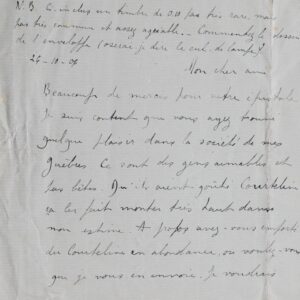 N.B Ci-inclus un timbre de 0.10 pas très rare, mais
pas très commun et assez agréable. Commentez le dessin
de l'enveloppe (oserai-je dire le cul de lampe)
26-10-06
Mon cher ami
Beaucoup de mercis pour votre épistole.
Je suis content que vous ayez trouvé
quelque plaisir dans la société de mes
Guèbres Ce sont des gens aimables et
pas bêtes. Qu'ils aient goûté Courteline
ça les fait monter très haut dans
mon estime. A propos avez-vous emporté
du Courteline en abondance, ou voulez-vous
que je vous en envoie. Je voudrais